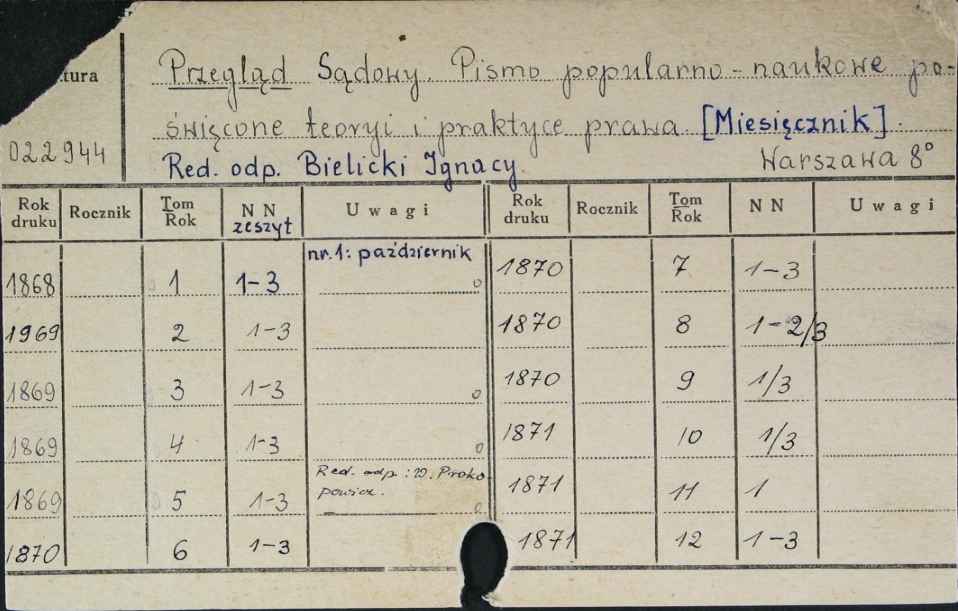 tura
Przegląd Sądowy. Pismo popularno-naukowe po-
święcone teoryi i praktyce prawa [Miesięcznik].
022944
Red. odp. Bielicki Ignacy.
Warszawa 8°
Rok druku Rocznik Tom Rok NN zeszyt Uwagi Rok druku Rocznik Tom Rok NN Uwagi
1868 1 1-3 nr. 1: październik 1870 7 1-3
1969 2 1-3 1870 8 1-2/3
1869 3 1-3 1870 9 1/3
1869 4 1-3 1871 10 1/3
1869 5 1-3 Red. odp.: W. Proko-
powicz. 1871 11 1
1870 6 1-3 1871 12 1-3